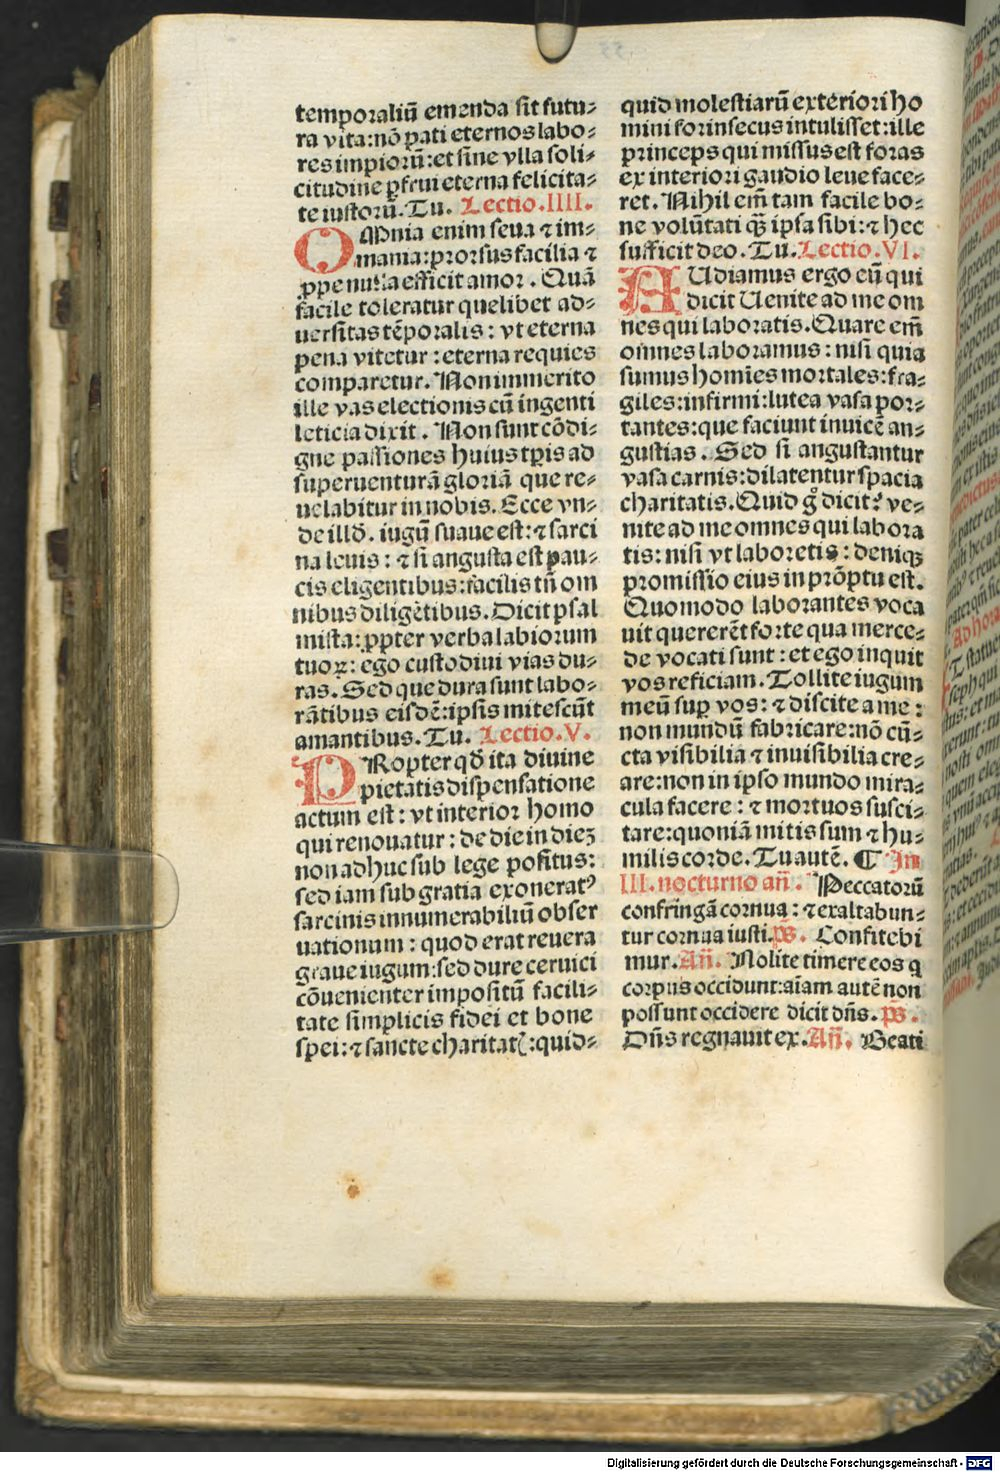 temporaliũ emenda sit futu⸗
ra vita:nõ ꝑati eternos labo⸗
res impiorũ:et sine vlla soli⸗
citudine ꝑfrui eterna felicita⸗
te iustorũ. Tu. Lectio.IIII.
OMnia enim seua ⁊ im⸗
mania:prorsus facilia ⁊
ꝓpe nulla efficit amor. Quã
facile toleratur quelibet ad⸗
uersitas tẽporalis: vt eterna
pena vitetur: eterna requies
comparetur. Non immerito
ille vas electionis cũ ingenti
leticia dixit. Non sunt cõdi⸗
gne passiones huius tꝑis ad
superuenturã gloriã que re⸗
uelabitur in nobis. Ecce vn⸗
de illđ. iugũ suaue est:⁊ sarci
na leuis: ⁊ si angusta est pau⸗
cis eligentibus:facilis tñ om
nibus diligẽtibus. Dicit psal
mista: ꝓpter verba labiorum
tuoꝝ: ego custodiui vias du⸗
ras. Sed que dura sunt labo⸗
rãtibus eisdẽ:ipsis mitescũt
amantibus. Tu. Lectio.V.
PRopter qđ ita diuine
pietatis dispensatione
actum est: vt interior homo
qui renouatur: de die in dieꝫ
non adhuc sub lege positus:
sed iam sub gratia exoneratꝰ
sarcinis innumerabiliũ obser
uationum: quod erat reuera
graue iugum:sed dure ceruici
cõuenienter impositũ facili⸗
tate simplicis fidei et bone
spei:⁊ sancte charitatꝭ:quid⸗
quid molestiarũ exteriori ho
mini forinsecus intulisset:ille
princeps qui missus est foras
ex interiori gaudio leue face⸗
ret. Nihil em̃ tam facile bo⸗
ne volũtati qꝫ̃ ipsa sibi:⁊ hec
sufficit deo. Tu. Lectio.VI.
AUdiamus ergo eũ qui
dicit Uenite ad me om
nes qui laboratis. Quare em̃
omnes laboramus: nisi quia
sumus homĩes mortales:fra⸗
giles:infirmi:lutea vasa por⸗
tantes:que faciunt inuicẽ an⸗
gustias. Sed si angustantur
vasa carnis:dilatentur spacia
charitatis. Quid gͦ dicit? ve⸗
nite ad me omnes qui labora
tis: nisi vt laboretis: deniqꝫ
promissio eius in prõptu est.
Quomodo laborantes voca
uit quererẽt forte qua merce⸗
de vocati sunt: et ego inquit
vos reficiam. Tollite iugum
meũ suꝑ vos: ⁊ discite a me:
non mundũ fabricare:nõ cũ⸗
cta visibilia ⁊ inuisibilia cre⸗
are:non in ipso mundo mira⸗
cula facere: ⁊ mortuos susci⸗
tare:quoniã mitis sum ⁊ hu⸗
milis corde. Tu autẽ. ¶ In
III. nocturno añ. Peccatorũ
confringã cornua: ⁊ exaltabun⸗
tur cornua iusti. p̃s. Confitebi
mur. Añ. Nolite timere eos q
corpus occidunt:aĩam autẽ non
possunt occidere dicit dñs. p̃s.
Dñs regnauit ex. Añ. Beati
Digitalisierung gefördert durch die Deutsche Forschungsgemeinschaft - DFG